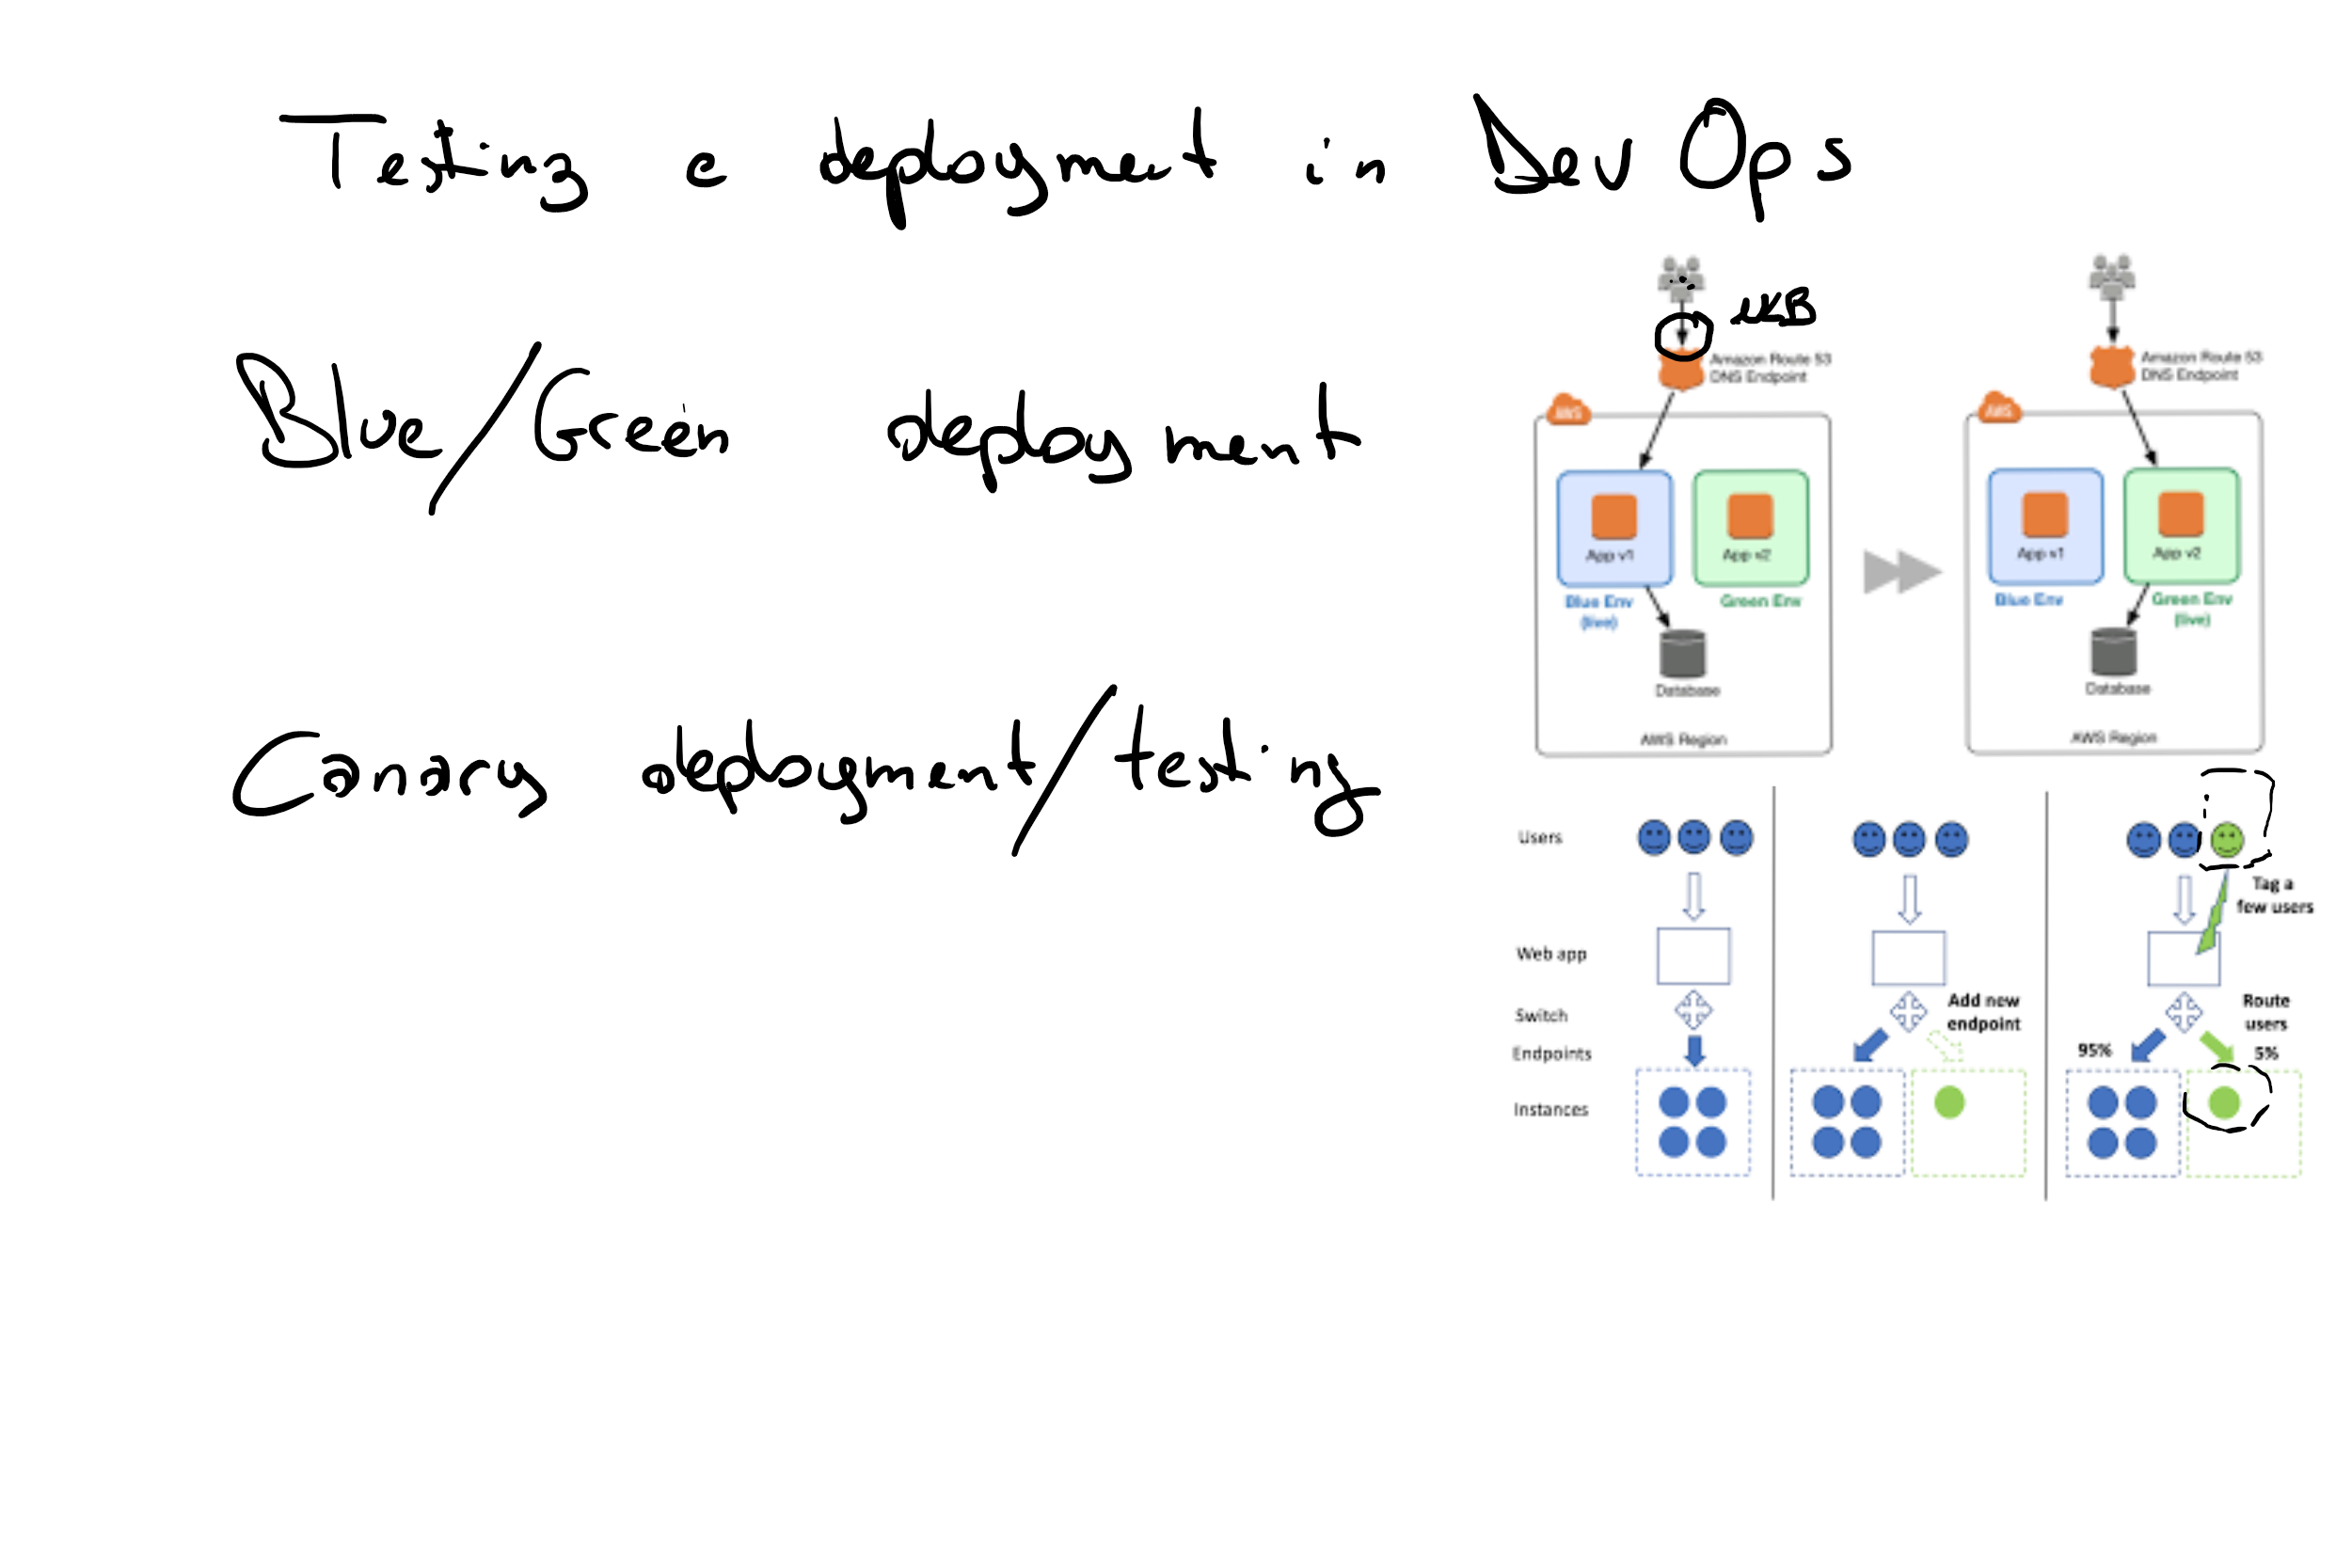 Testing a deployment in DevOps
Blue/Green deployment
Canary deployment/testing
Amazon Route 53
DNS Endpoint
AWS
App v1
App v2
Blue Env
(live)
Green Env
Database
AWS Region
Amazon Route 53
DNS Endpoint
AWS
App v1
App v2
Blue Env
Green Env
(live)
Database
AWS Region
Users
Web app
Switch
Endpoints
Instances
Add new
endpoint
Tag a
few users
Route
users
95%
5%